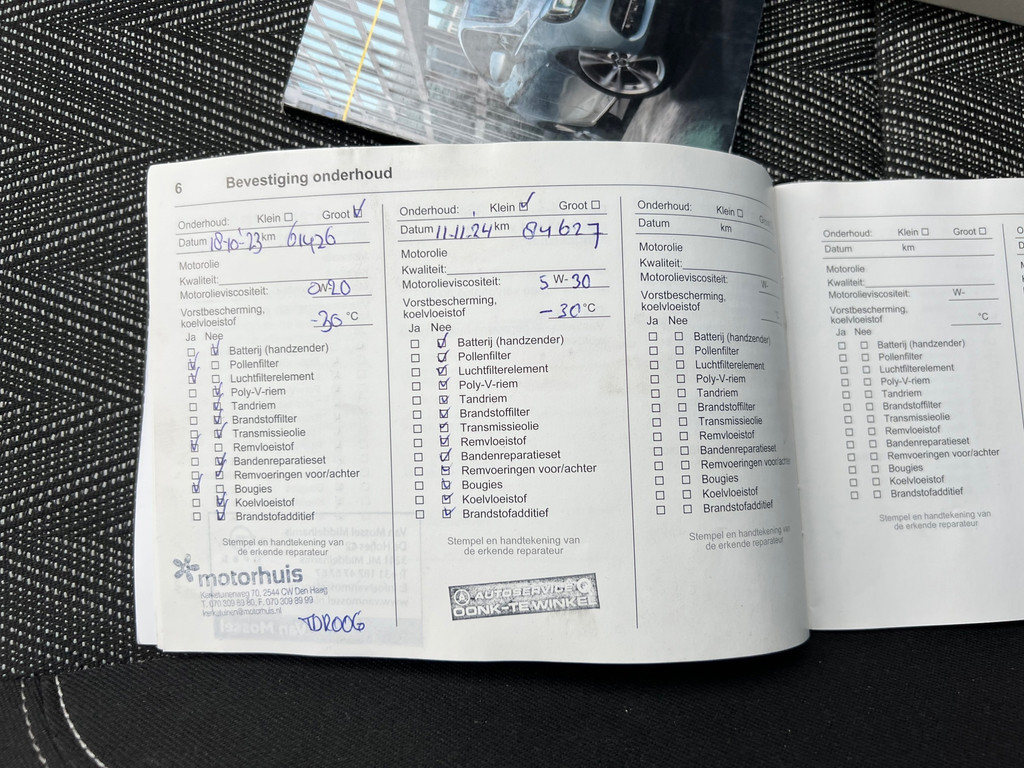 6 Bevestiging onderhoud
Onderhoud: Klein ☐ Groot ☑
Datum 18-10-'23 km 61426
Motorolie
Kwaliteit:
Motorolieviscositeit: 0W-20
Vorstbescherming,
koelvloeistof -36 °C
Ja Nee
☐ ☑ Batterij (handzender)
☑ ☐ Pollenfilter
☑ ☐ Luchtfilterelement
☐ ☑ Poly-V-riem
☐ ☑ Tandriem
☐ ☑ Brandstoffilter
☐ ☑ Transmissieolie
☑ ☐ Remvloeistof
☐ ☑ Bandenreparatieset
☐ ☑ Remvoeringen voor/achter
☑ ☐ Bougies
☐ ☑ Koelvloeistof
☐ ☑ Brandstofadditief
Stempel en handtekening van
de erkende reparateur
motorhuis
70, 2544 CW Den Haag
T. 070 309 89 80, F. 070 309 89 99
TDROOG
Onderhoud: Klein ☑ Groot ☐
Datum 11-11-24 km 84627
Motorolie
Kwaliteit:
Motorolieviscositeit: 5 W-30
Vorstbescherming,
koelvloeistof -30 °C
Ja Nee
☐ ☑ Batterij (handzender)
☐ ☑ Pollenfilter
☐ ☑ Luchtfilterelement
☐ ☑ Poly-V-riem
☐ ☑ Tandriem
☐ ☑ Brandstoffilter
☐ ☑ Transmissieolie
☐ ☑ Remvloeistof
☐ ☑ Bandenreparatieset
☐ ☑ Remvoeringen voor/achter
☐ ☑ Bougies
☐ ☑ Koelvloeistof
☐ ☑ Brandstofadditief
Stempel en handtekening van
de erkende reparateur
AUTOSERVICE
OONK-TE WINKEL
Onderhoud: Klein ☐ Groot
Datum km
Motorolie
Kwaliteit:
Motorolieviscositeit: W-
Vorstbescherming,
koelvloeistof °C
Ja Nee
☐ ☐ Batterij (handzender)
☐ ☐ Pollenfilter
☐ ☐ Luchtfilterelement
☐ ☐ Poly-V-riem
☐ ☐ Tandriem
☐ ☐ Brandstoffilter
☐ ☐ Transmissieolie
☐ ☐ Remvloeistof
☐ ☐ Bandenreparatieset
☐ ☐ Remvoeringen voor/achter
☐ ☐ Bougies
☐ ☐ Koelvloeistof
☐ ☐ Brandstofadditief
Stempel en handtekening van
de erkende reparateur
Onderhoud: Klein ☐ Groot ☐
Datum km
Motorolie
Kwaliteit:
Motorolieviscositeit: W-
Vorstbescherming,
koelvloeistof °C
Ja Nee
☐ ☐ Batterij (handzender)
☐ ☐ Pollenfilter
☐ ☐ Luchtfilterelement
☐ ☐ Poly-V-riem
☐ ☐ Tandriem
☐ ☐ Brandstoffilter
☐ ☐ Transmissieolie
☐ ☐ Remvloeistof
☐ ☐ Bandenreparatieset
☐ ☐ Remvoeringen voor/achter
☐ ☐ Bougies
☐ ☐ Koelvloeistof
☐ ☐ Brandstofadditief
Stempel en handtekening van
de erkende reparateur